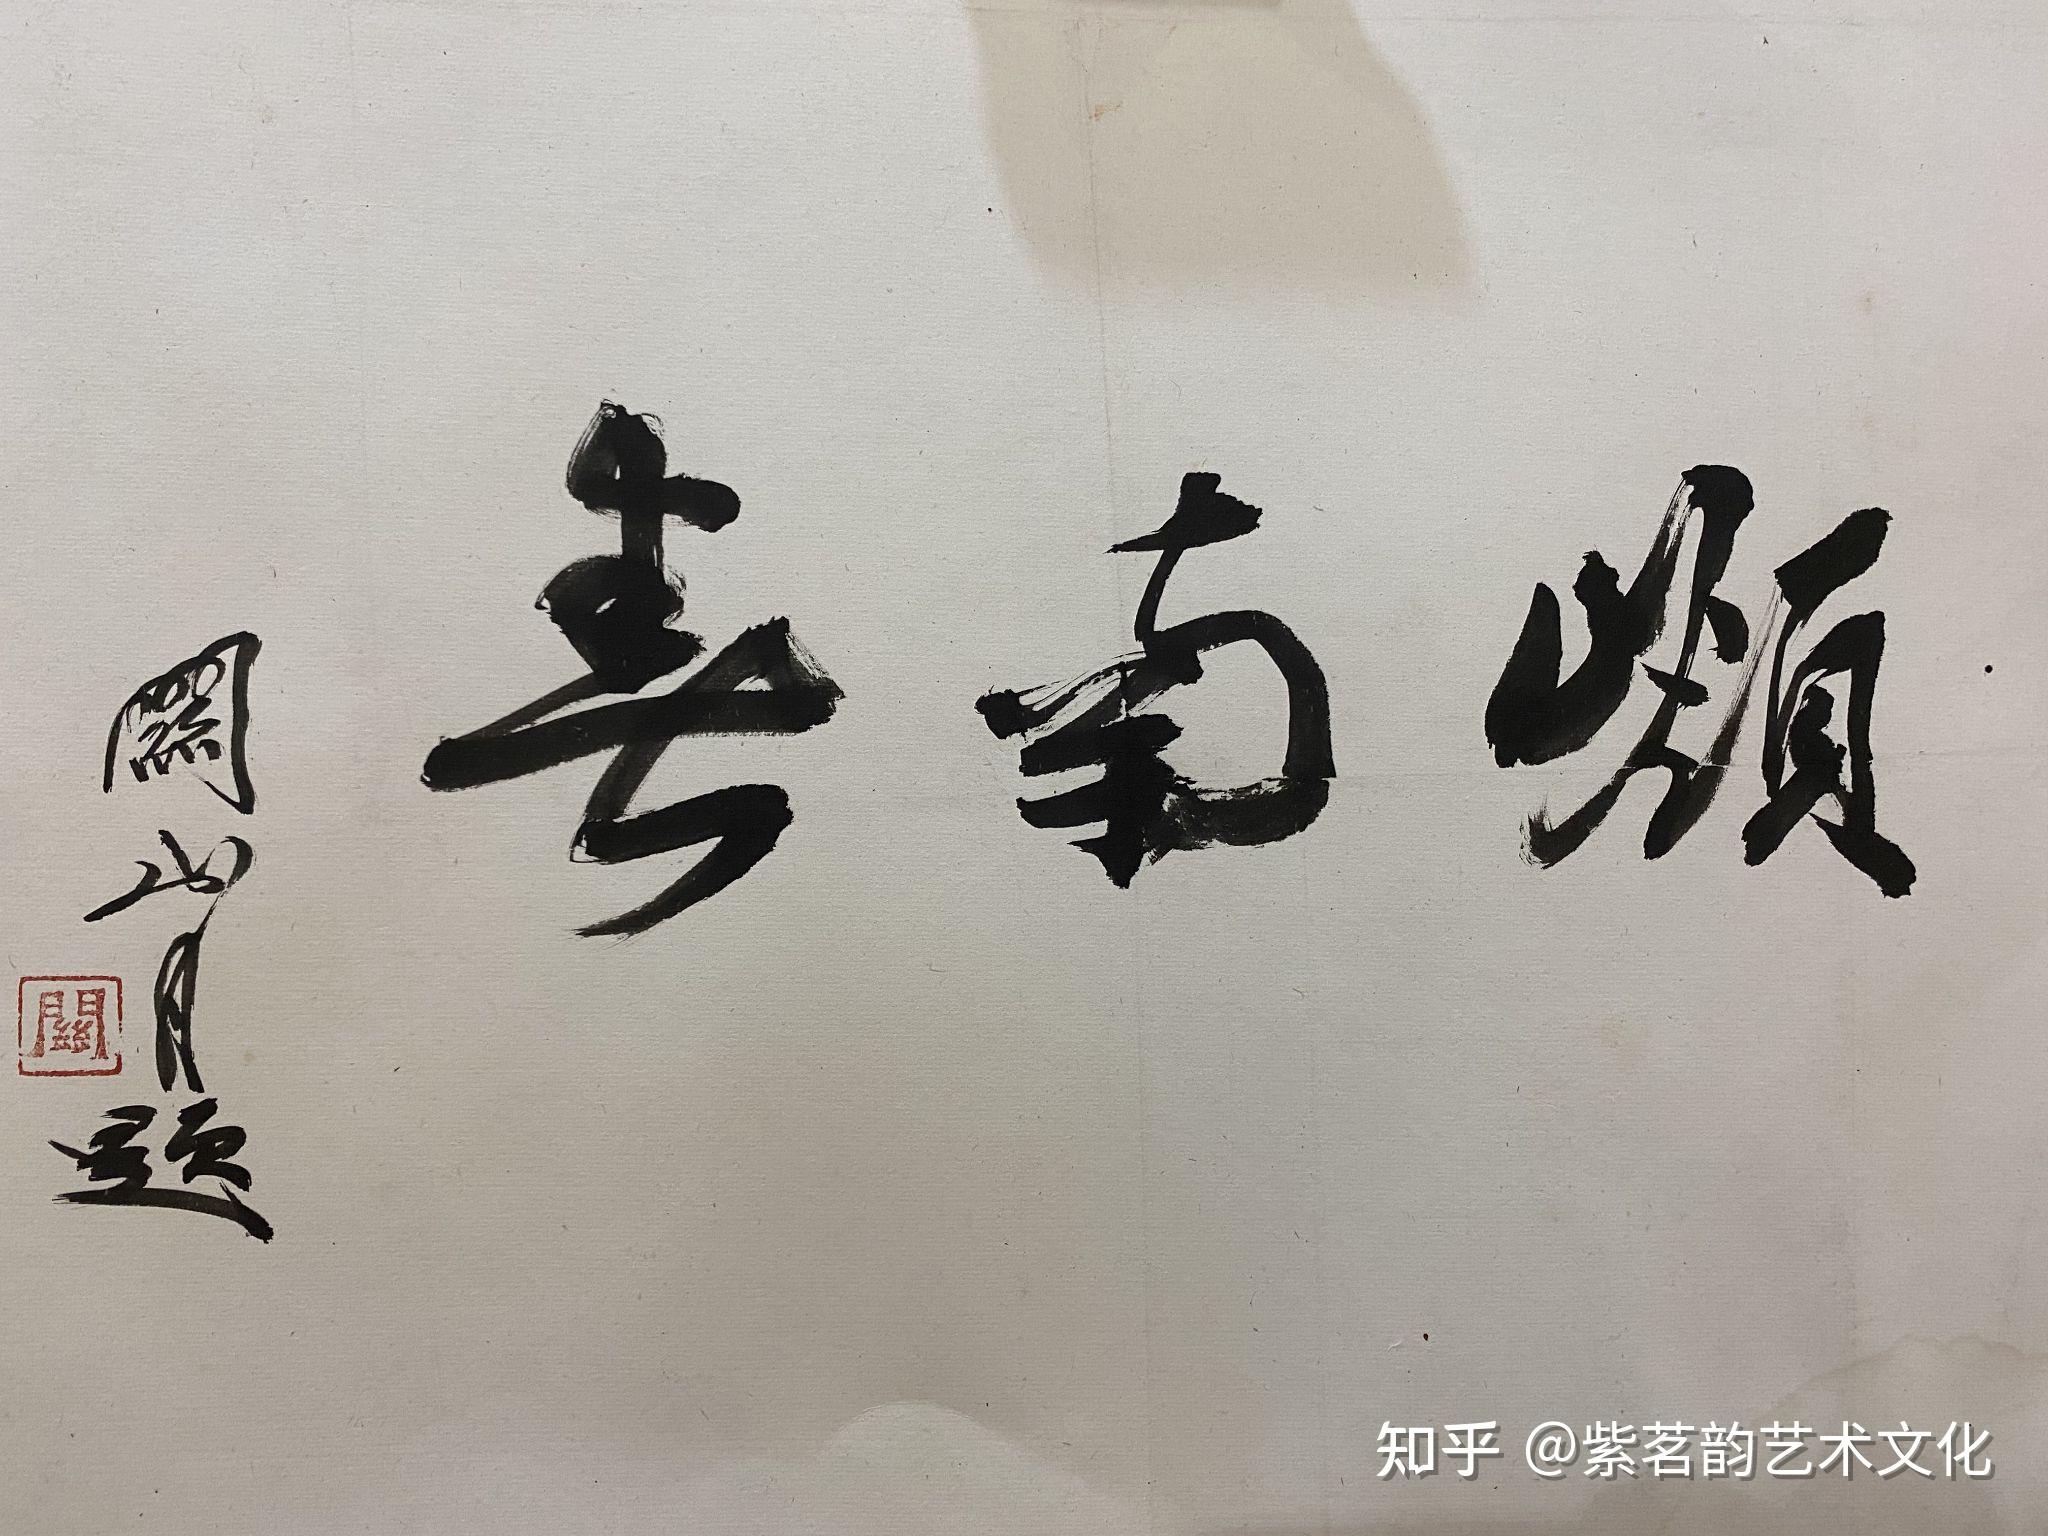 嶺南春
關山月題
關
知乎 @紫茗韵艺术文化